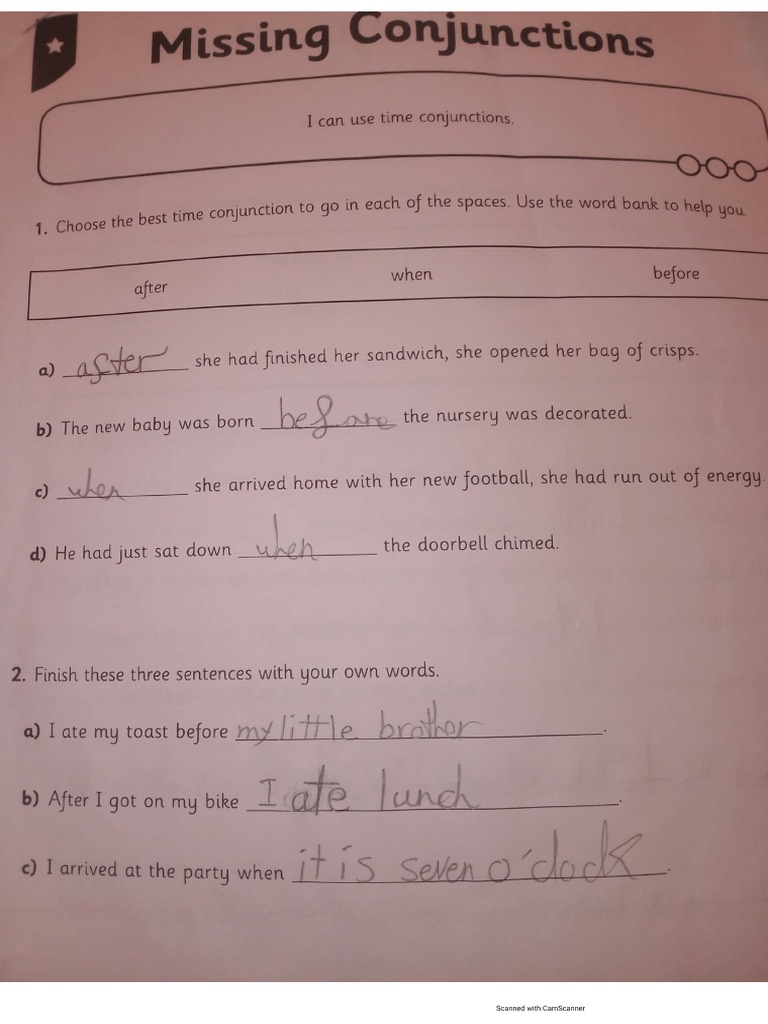 Missing Conjunctions
I can use time conjunctions.
1. Choose the best time conjunction to go in each of the spaces. Use the word bank to help you.
after when before
a) after she had finished her sandwich, she opened her bag of crisps.
b) The new baby was born before the nursery was decorated.
c) when she arrived home with her new football, she had run out of energy.
d) He had just sat down when the doorbell chimed.
2. Finish these three sentences with your own words.
a) I ate my toast before my little brother.
b) After I got on my bike I ate lunch.
c) I arrived at the party when it is seven o'clock.
Scanned with CamScanner